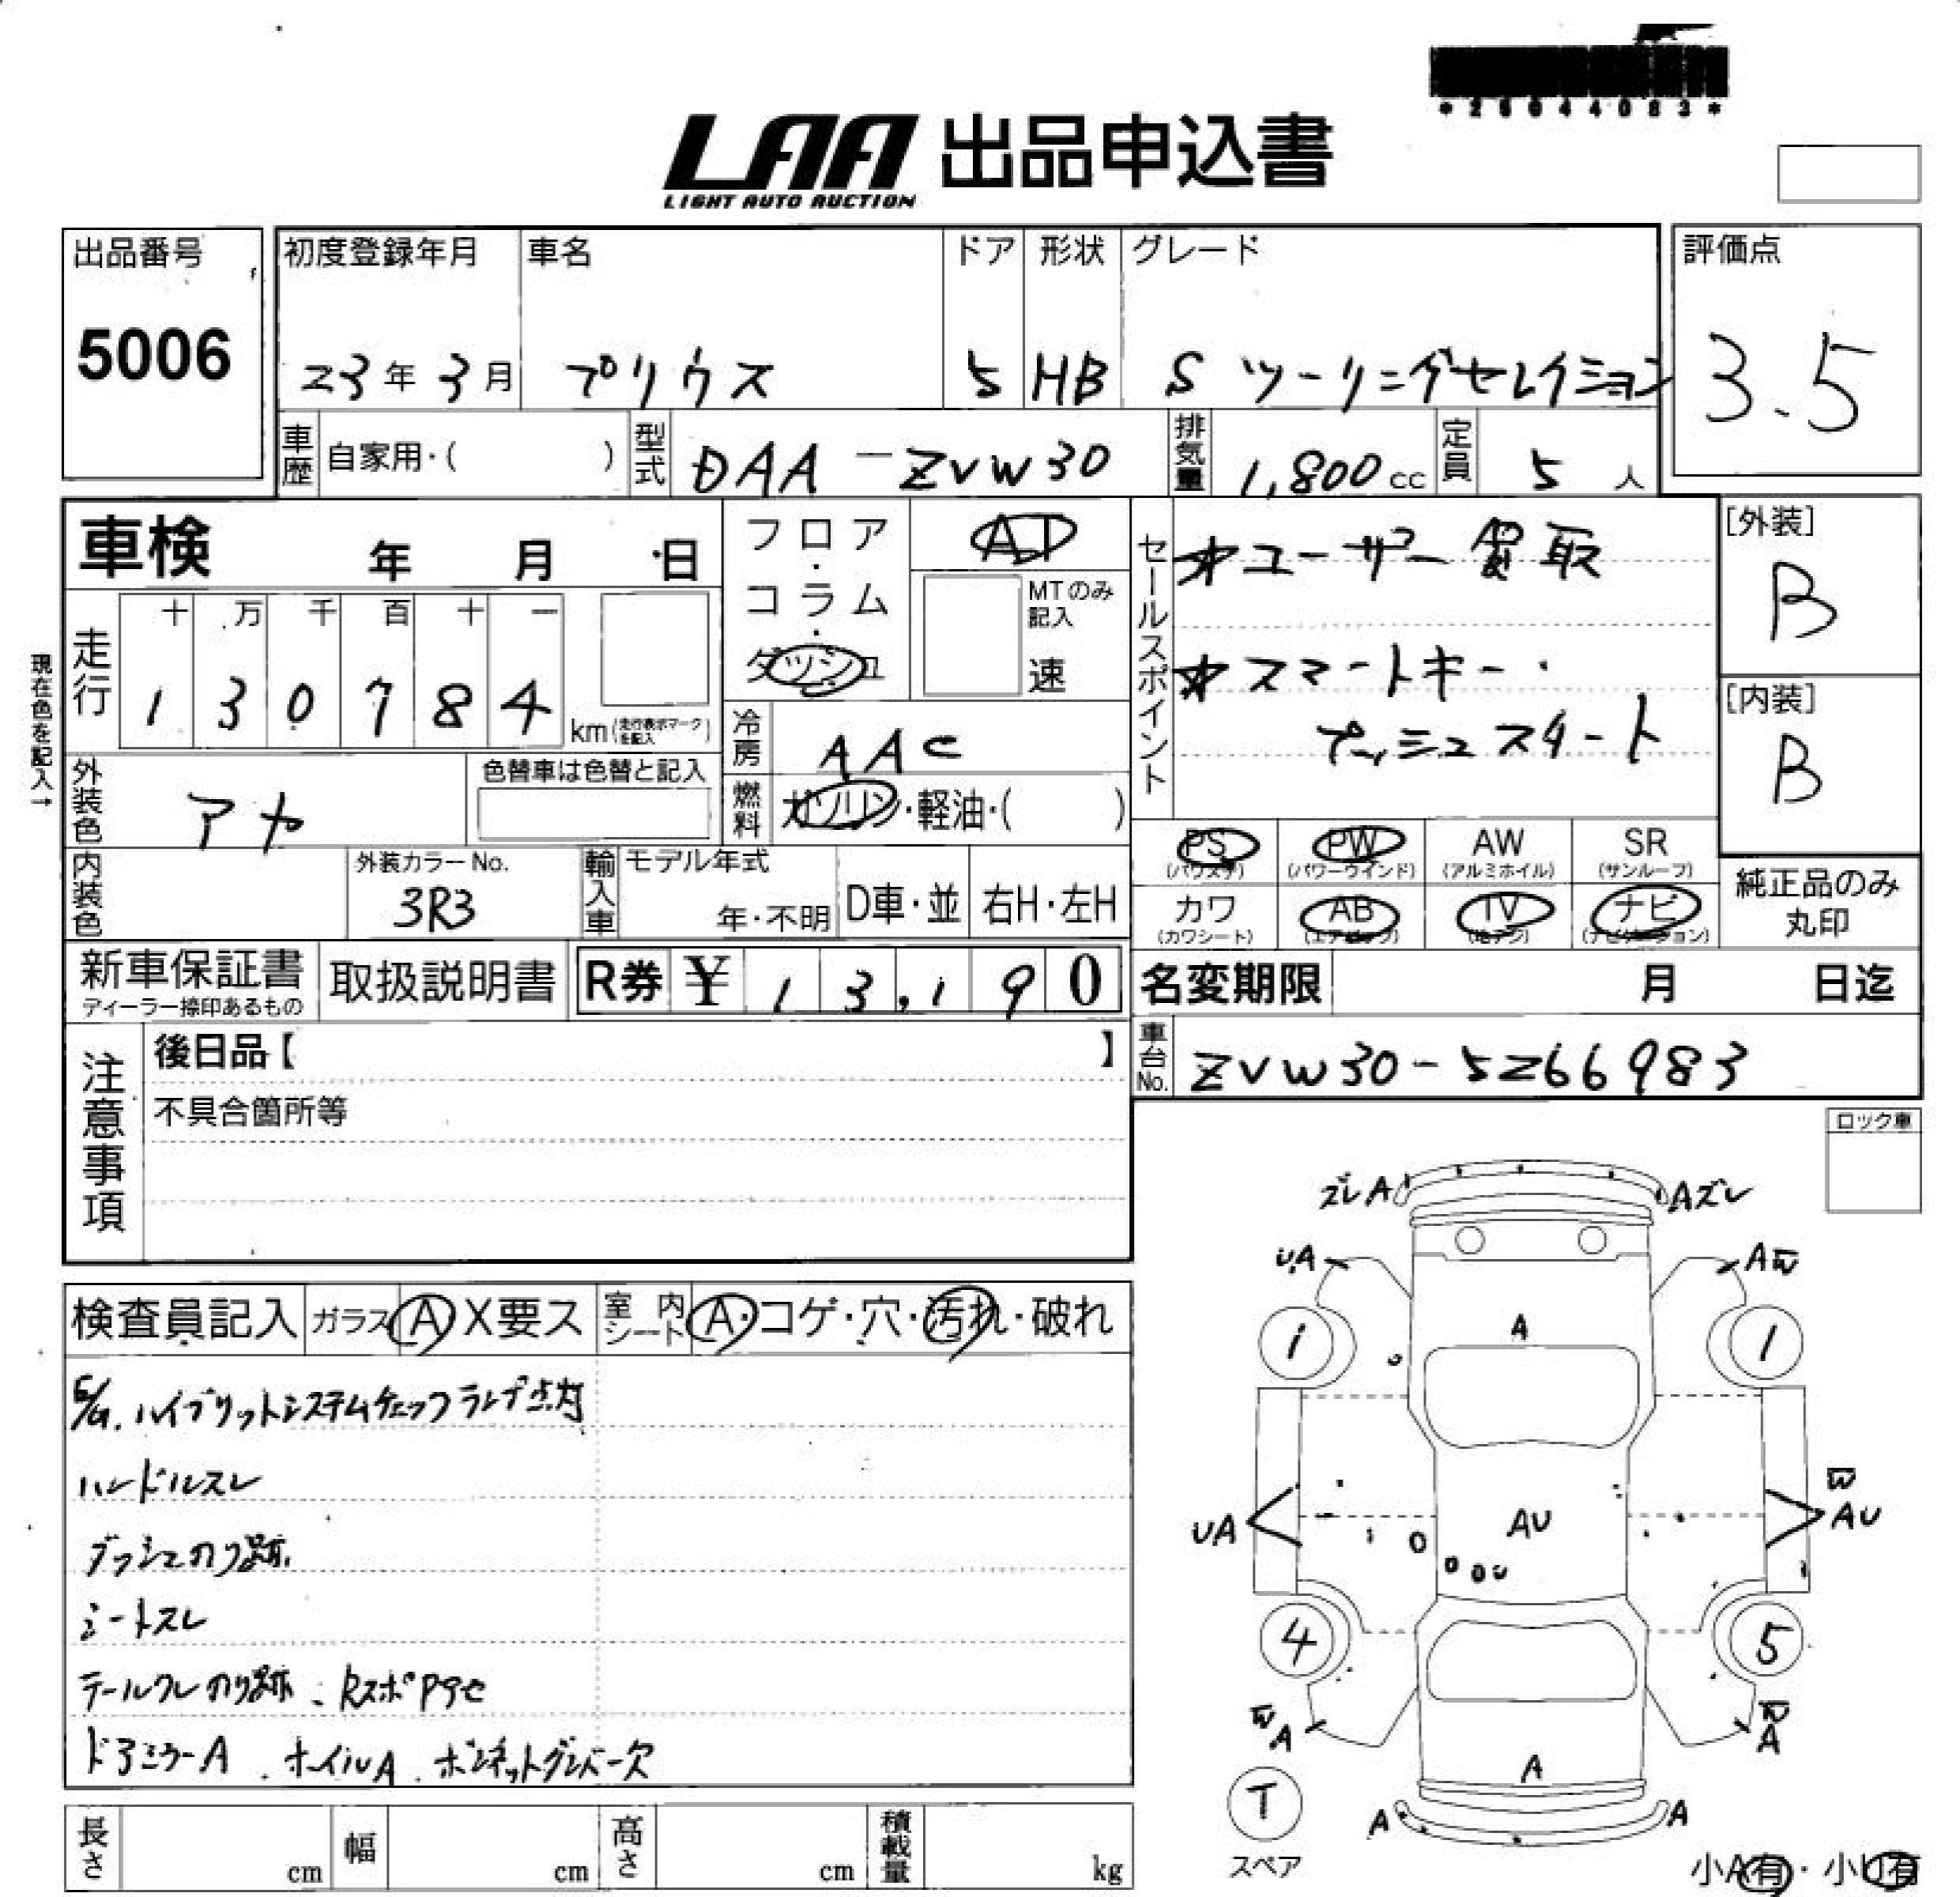 *26044083*
LAA 出品申込書
LIGHT AUTO AUCTION
出品番号
5006
初度登録年月 車名 ドア 形状 グレード
23年3月 プリウス 5 HB S ツーリングセレクション
評価点
3.5
車歴 自家用・( ) 型式 DAA-ZVW30 排気量 1,800cc 定員 5人
車検 年 月 日
フロア・コラム・ダッシュ
AT
MTのみ記入
速
現在色を記入→
走行 十 万 千 百 十 一
1 3 0 7 8 4 km(走行表示マークを記入)
外装色 アカ
色替車は色替と記入
冷房 AAC
燃料 ガソリン・軽油・( )
内装色
外装カラーNo.
3R3
輸入車 モデル年式
年・不明 D車・並 右H・左H
セールスポイント
☆ユーザー買取
☆スマートキー・
プッシュスタート
[外装]
B
[内装]
B
PS PW AW SR
(パワステ) (パワーウインド) (アルミホイル) (サンルーフ)
カワ AB TV ナビ
(カワシート) (エアバック) (地デジ) (ナビゲーション)
純正品のみ
丸印
新車保証書
ディーラー捺印あるもの
取扱説明書 R券 ¥ 13,190
名変期限 月 日迄
車台No. ZVW30-5266983
注意事項
後日品【 】
不具合箇所等
ロック車
検査員記入 ガラス A X要ス 室内シート A・コゲ・穴・汚れ・破れ
ハイブリットシステムチェックランプ点灯
ハンドルスレ
ダッシュのり跡.
シートスレ
テールワレのり跡 . RスポPタセ
ドアミラーA . ホイルA . ボンネットダンパー欠
ズレA Aズレ
UA AW
1 1
A
W
UA AU AU
4 5
WA WA
A
T
A A
スペア
小A有・小U有
長さ cm 幅 cm 高さ cm 積載量 kg